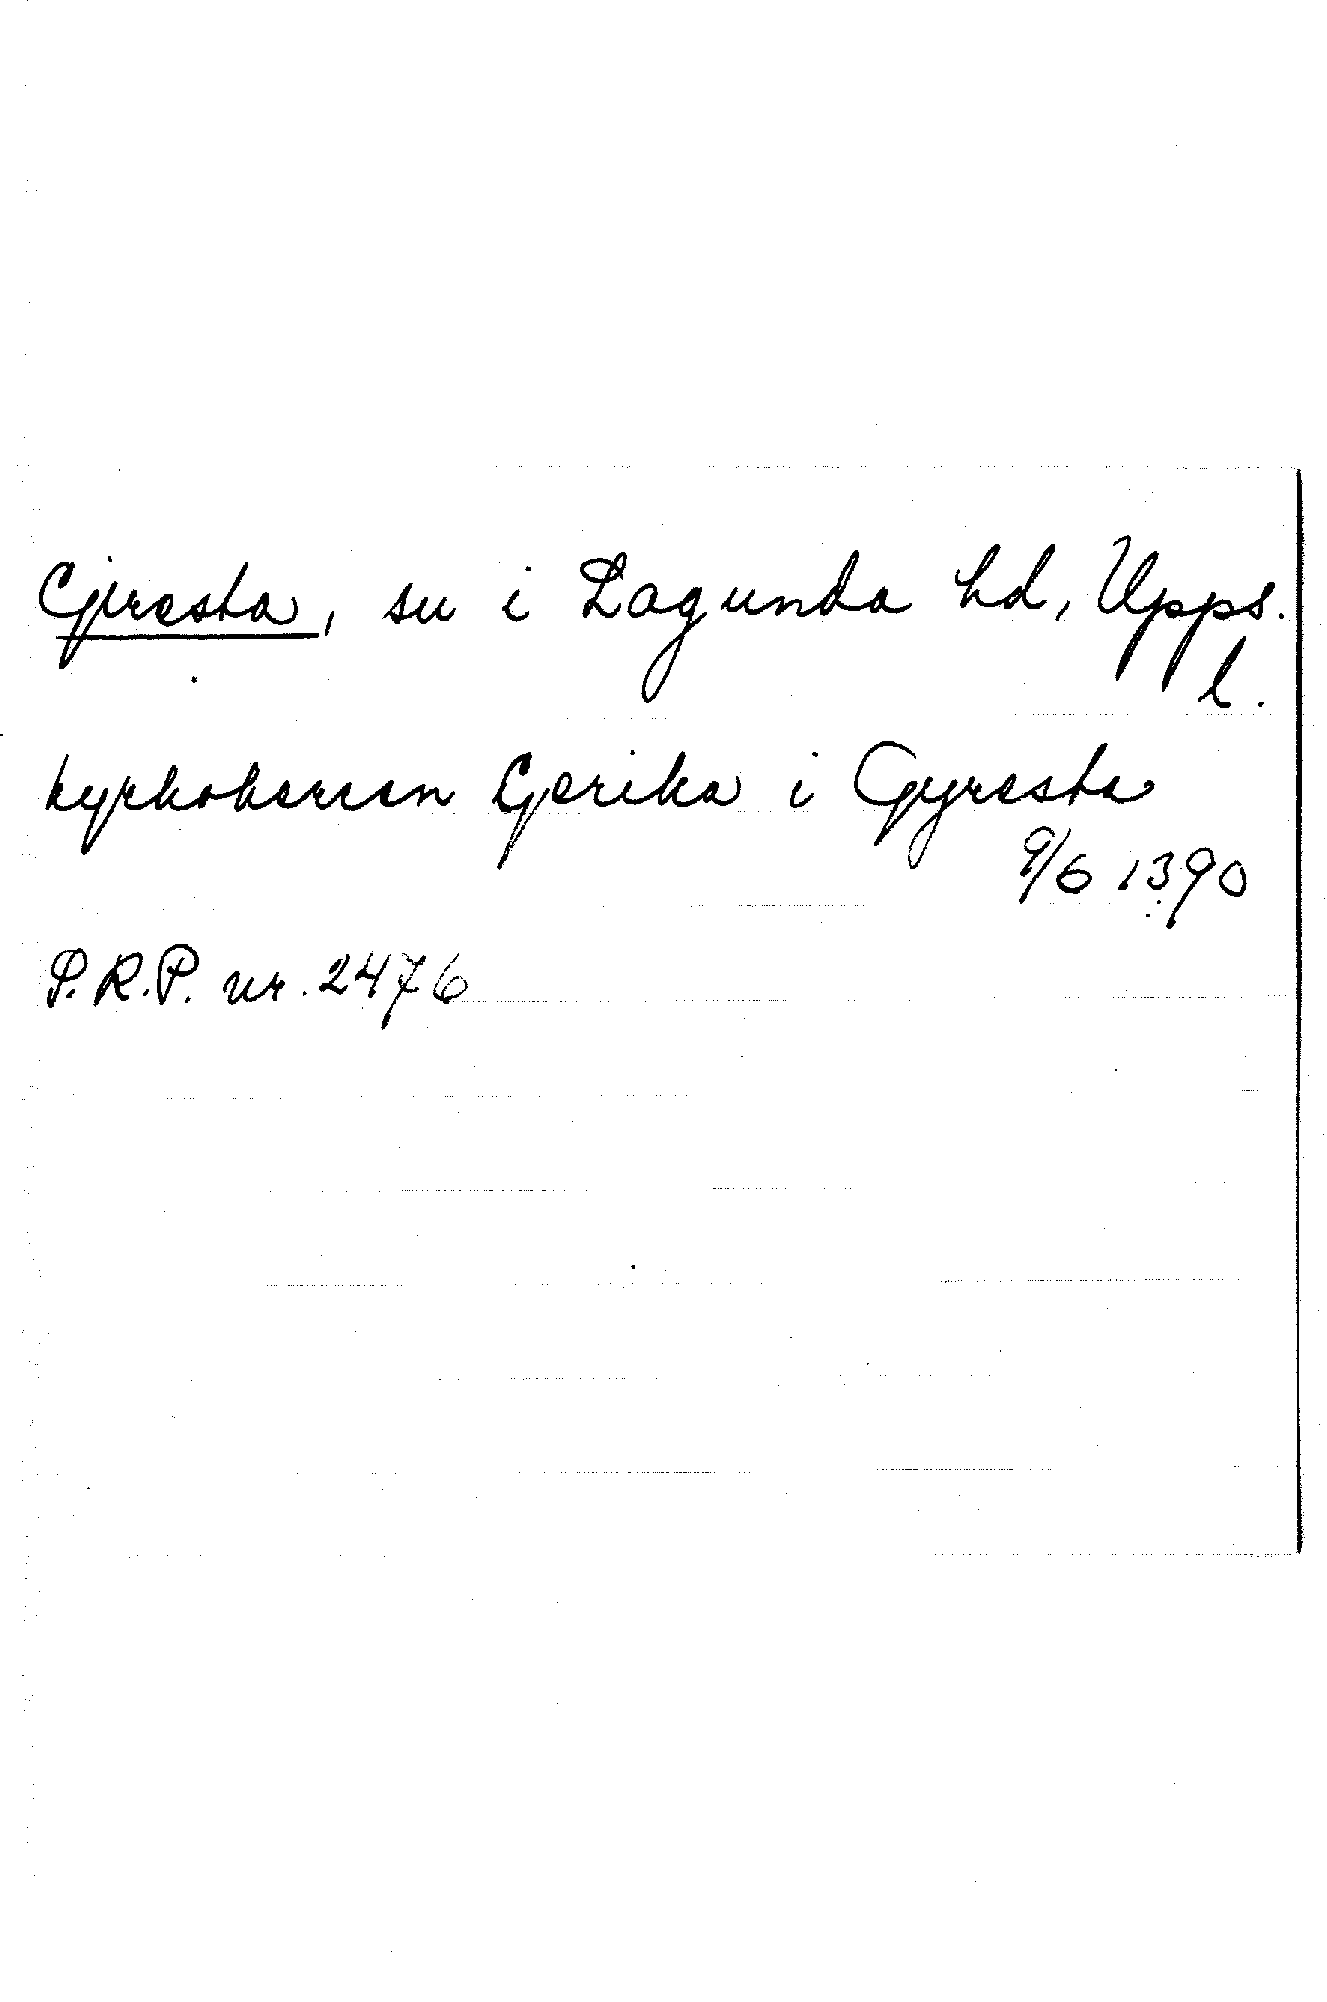 Giresta, sn i Lagunda hd, Upps.
l.
kyrkoherren Gerika i Gyresta
9/6 1390
P.R.P. nr. 2476